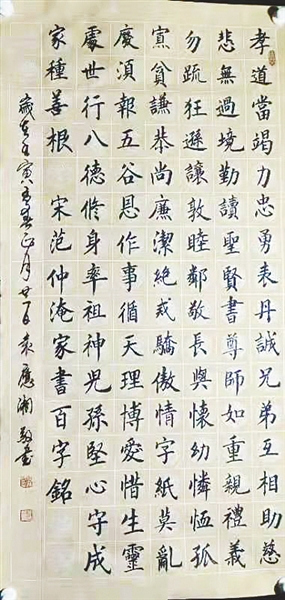 孝道當竭力忠勇表丹誠兄弟互相助慈
悲無過境勤讀聖賢書尊師如重親禮義
勿疏狂遜讓敦睦鄰敬長與懷幼憐恤孤
寡貧謙恭尚廉潔絶戒驕傲情字紙莫亂
廢須報五谷恩作事循天理博愛惜生靈
處世行八德修身率祖神兒孫堅心守成
家種善根 宋范仲淹家書百字銘
歲在壬寅孟春正月廿 袁應湘敬書